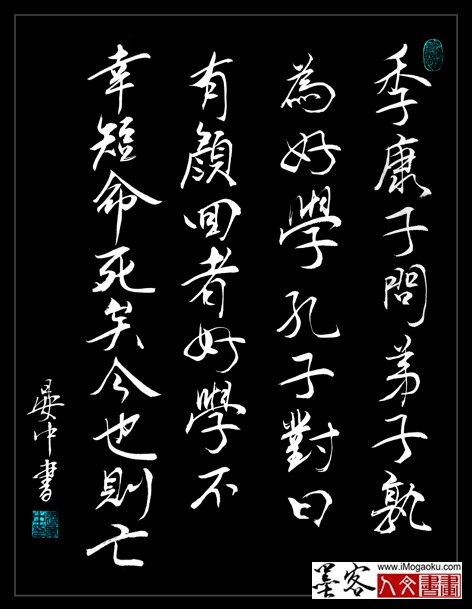 季康子問弟子孰
為好學孔子對曰
有顏回者好學不
幸短命死矣今也則亡
晏中書
墨客
www.iMogaoku.com
人文書畫